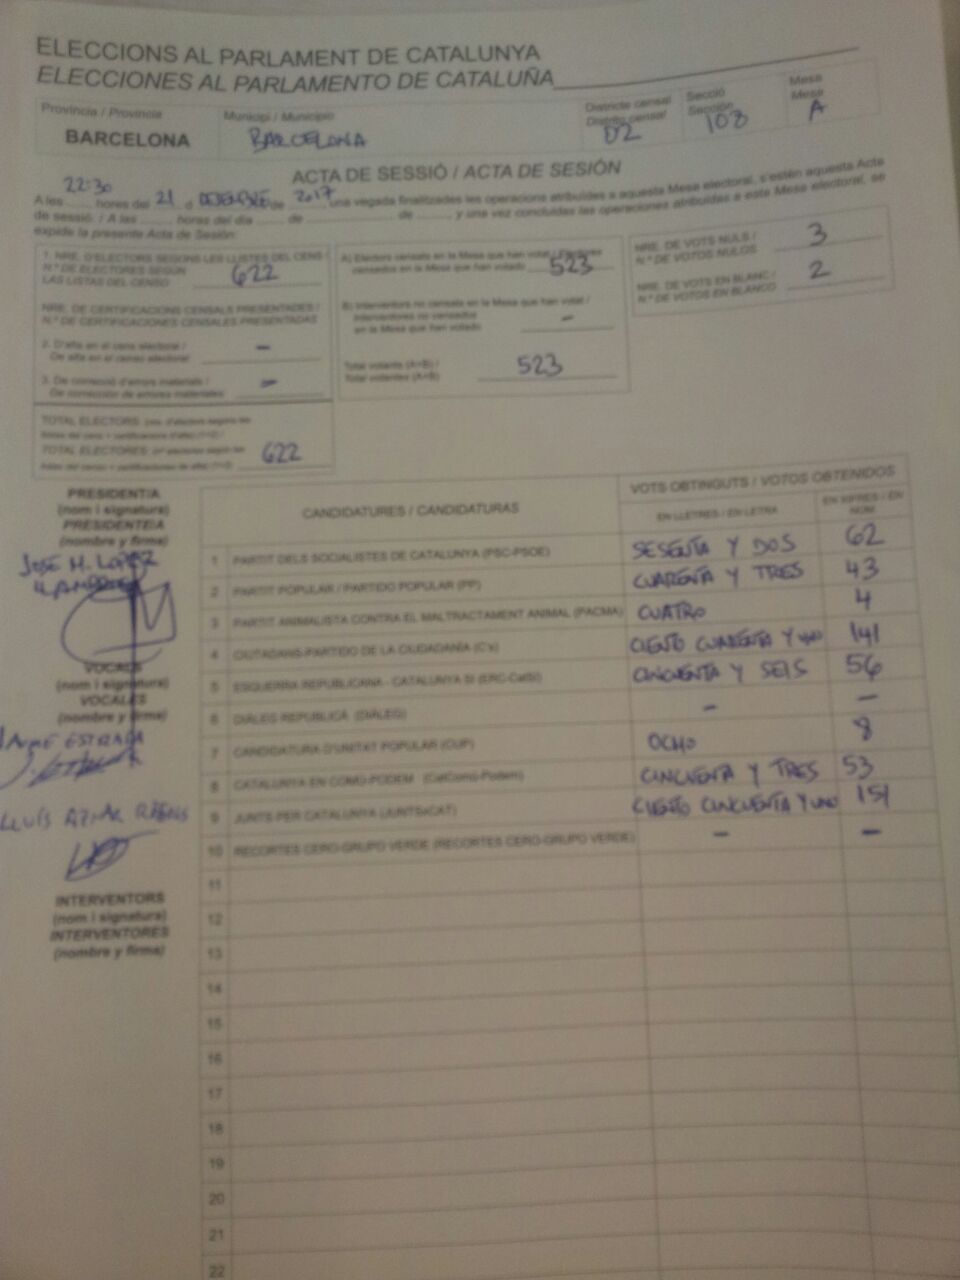 ELECCIONS AL PARLAMENT DE CATALUNYA
ELECCIONES AL PARLAMENTO DE CATALUÑA
Província / Provincia
BARCELONA
Municipi / Municipio
BARCELONA
Districte censal
Distrito censal
02
Secció
Sección
108
Mesa
Mesa
A
ACTA DE SESSIÓ / ACTA DE SESIÓN
22:30 21 2017
A les ...... hores del ...... d ...... de ......, una vegada finalitzades les operacions atribuïdes a aquesta Mesa electoral, s'estén aquesta Acta
de sessió. / A las ...... horas del día ...... de ...... de ...... y una vez concluidas las operaciones atribuidas a esta Mesa electoral, se
expide la presente Acta de Sesión:
1. NRE. D'ELECTORS SEGONS LES LLISTES DEL CENS /
N.º DE ELECTORES SEGÚN
LAS LISTAS DEL CENSO 622
NRE. DE CERTIFICACIONS CENSALS PRESENTADES /
N.º DE CERTIFICACIONES CENSALES PRESENTADAS
2. D'alta en el cens electoral /
De alta en el censo electoral: -
3. De correcció d'errors materials /
De corrección de errores materiales: -
TOTAL ELECTORS: (nre. d'electors segons les
llistes del cens + certificacions d'alta) (1+2) /
TOTAL ELECTORES: (nº electores según las
listas del censo + certificaciones de alta) (1+2) 622
A) Electors censats en la Mesa que han votat / Electores
censados en la Mesa que han votado 523
B) Interventors no censats en la Mesa que han votat /
Interventores no censados
en la Mesa que han votado -
Total votants (A+B) /
Total votantes (A+B) 523
NRE. DE VOTS NULS /
N.º DE VOTOS NULOS 3
NRE. DE VOTS EN BLANC /
N.º DE VOTOS EN BLANCO 2
PRESIDENT/A
(nom i signatura)
PRESIDENTE/A
(nombre y firma)
JOSE M. LOPEZ
VOCALS
(nom i signatura)
VOCALES
(nombre y firma)
JAUME ESTRADA
LLUÍS AZNAR
INTERVENTORS
(nom i signatura)
INTERVENTORES
(nombre y firma)
CANDIDATURES / CANDIDATURAS
VOTS OBTINGUTS / VOTOS OBTENIDOS
EN LLETRES / EN LETRA
EN XIFRES / EN NÚM.
1 PARTIT DELS SOCIALISTES DE CATALUNYA (PSC-PSOE) SESENTA Y DOS 62
2 PARTIT POPULAR / PARTIDO POPULAR (PP) CUARENTA Y TRES 43
3 PARTIT ANIMALISTA CONTRA EL MALTRACTAMENT ANIMAL (PACMA) CUATRO 4
4 CIUTADANS-PARTIDO DE LA CIUDADANÍA (C's) CIENTO CUARENTA Y UNO 141
5 ESQUERRA REPUBLICANA - CATALUNYA SÍ (ERC-CatSí) CINCUENTA Y SEIS 56
6 DIÀLEG REPUBLICÀ (DIÀLEG) - -
7 CANDIDATURA D'UNITAT POPULAR (CUP) OCHO 8
8 CATALUNYA EN COMÚ-PODEM (CatComú-Podem) CINCUENTA Y TRES 53
9 JUNTS PER CATALUNYA (JUNTSxCAT) CIENTO CINCUENTA Y UNO 151
10 RECORTES CERO-GRUPO VERDE (RECORTES CERO-GRUPO VERDE) - -
11
12
13
14
15
16
17
18
19
20
21
22